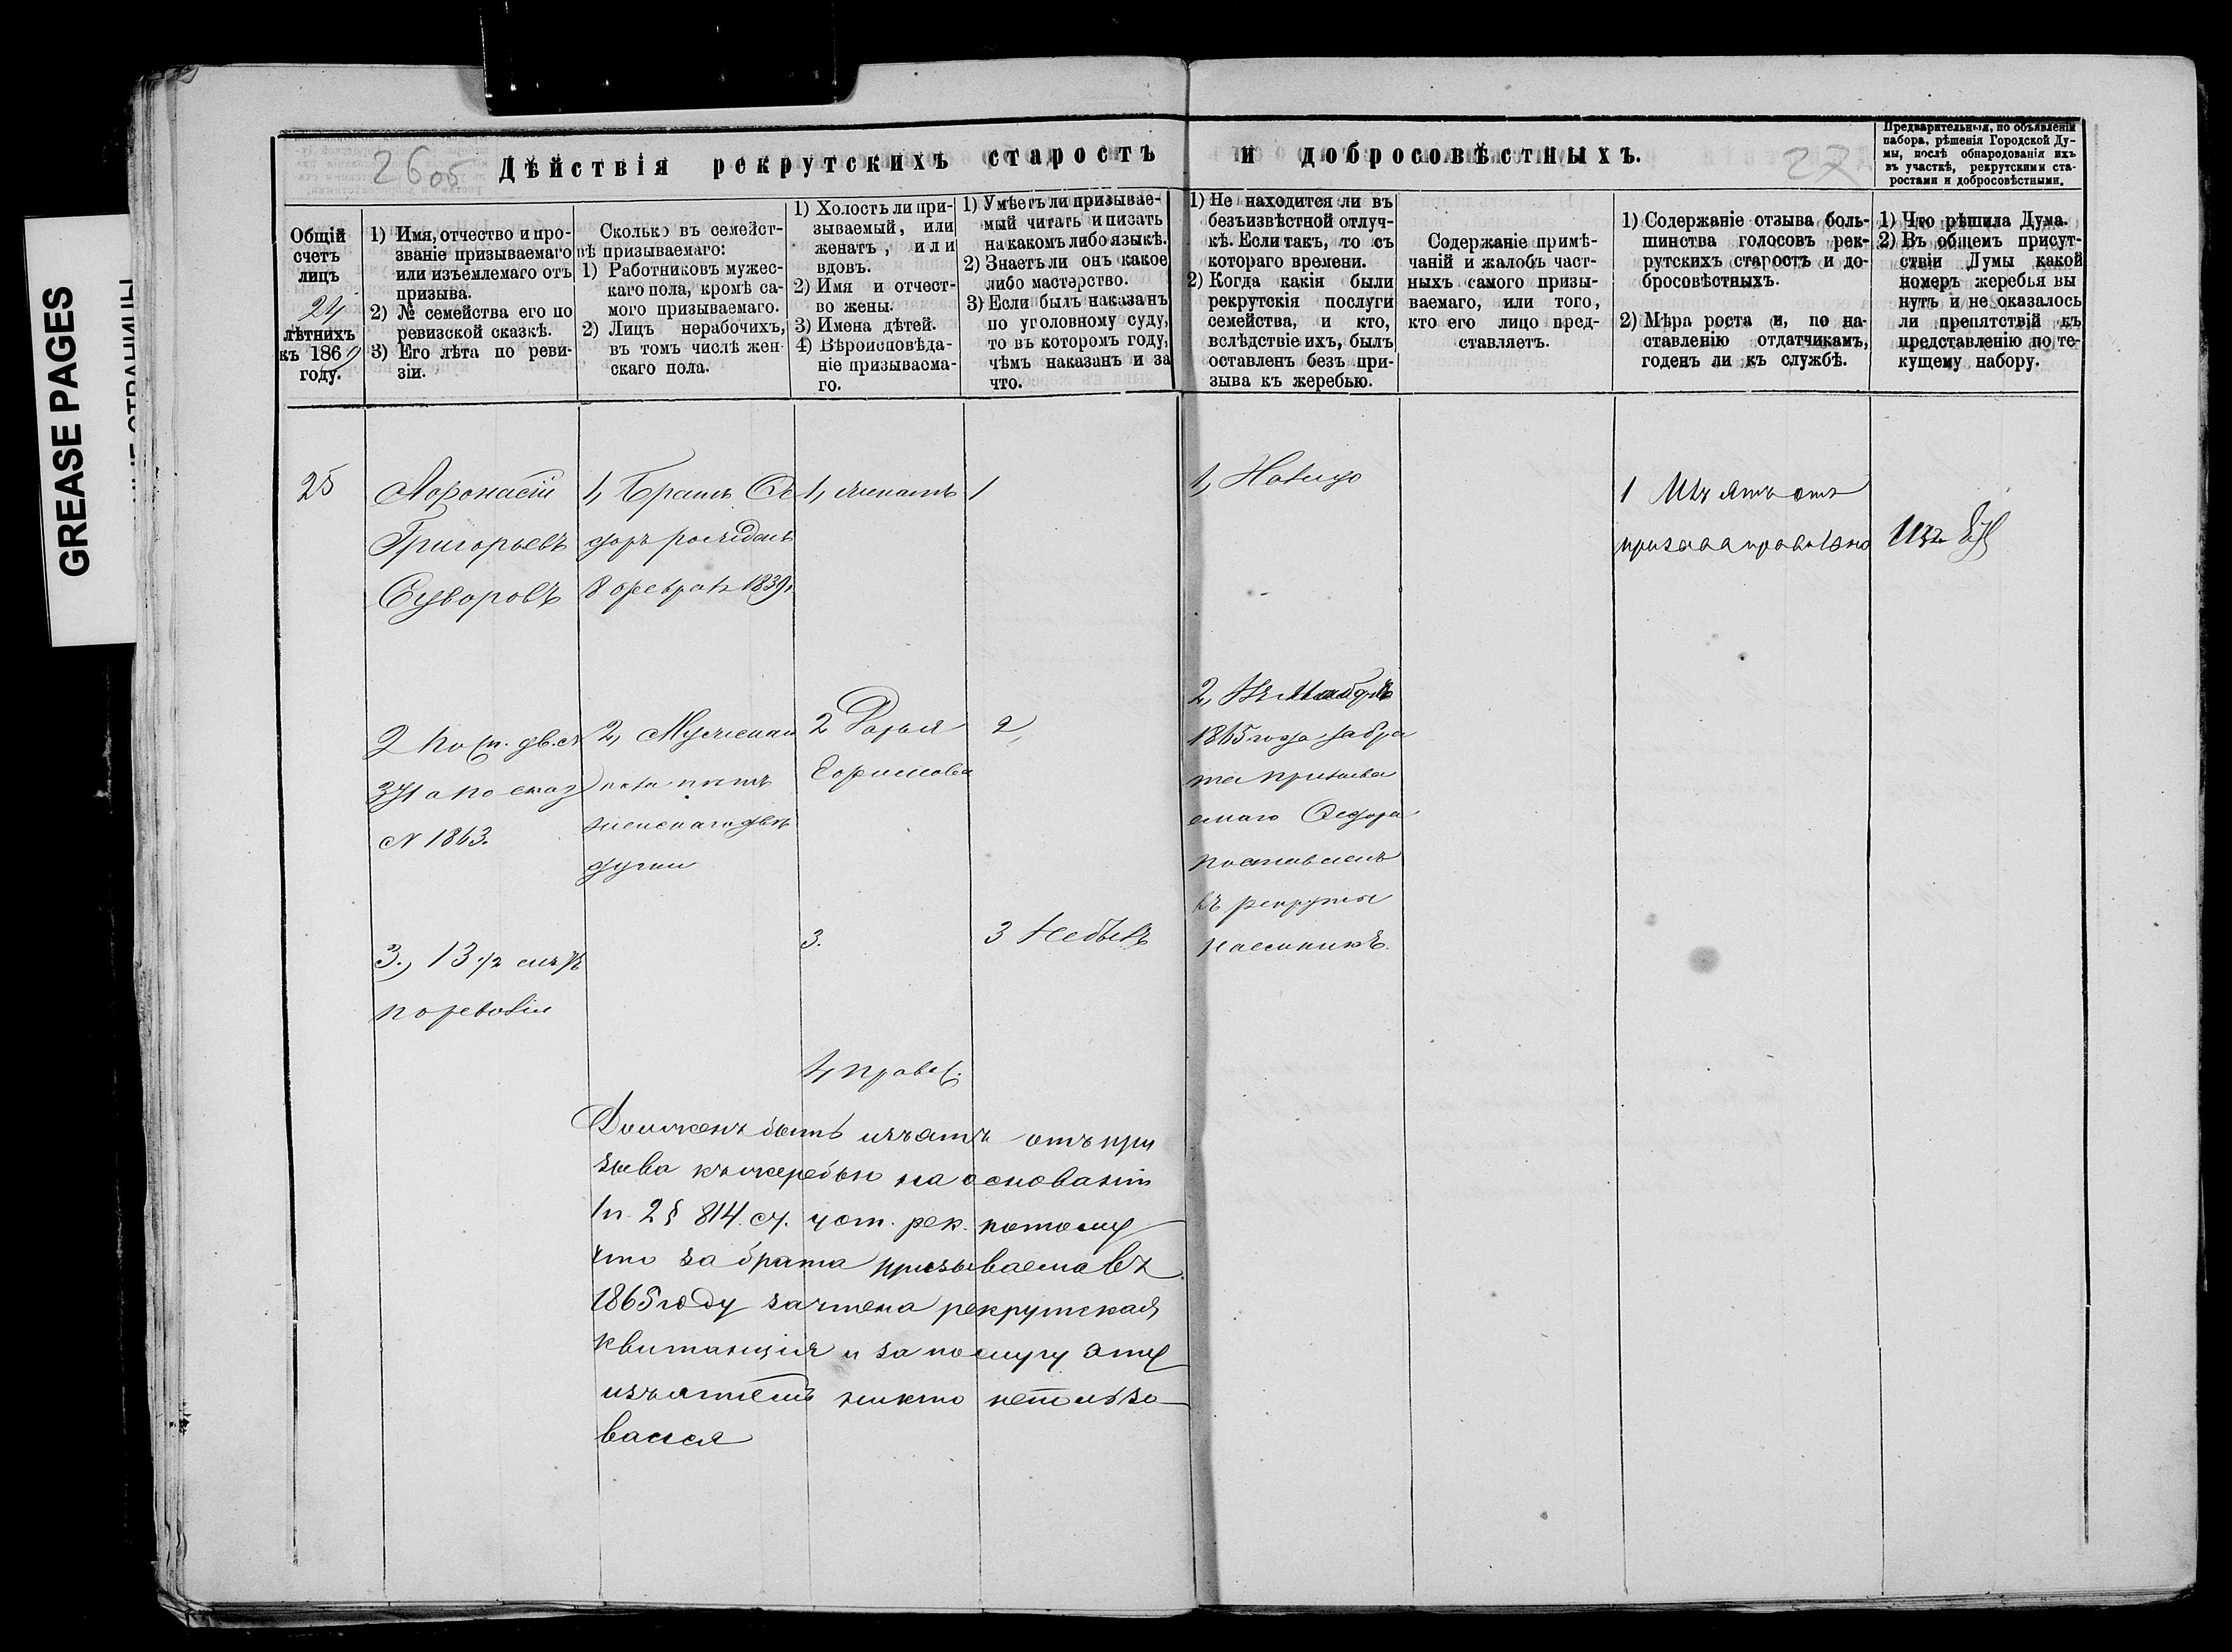 GREASE PAGES
26об
Дѣйствія рекрутскихъ старостъ и добросовѣстныхъ.
27
Предварительныя, по объявленіи
набора, рѣшенія Городской Ду-
мы, послѣ обнародованія ихъ
въ участкѣ, рекрутскими ста-
ростами и добросовѣстными.
Общій
счетъ
лицъ
24
лѣтнихъ
къ 1869
году.
1) Имя, отчество и про-
званіе призываемаго
или изъемлемаго отъ
призыва.
2) № семейства его по
ревизской сказкѣ.
3) Его лѣта по реви-
зіи.
Сколько въ семейст-
вѣ призываемаго:
1) Работниковъ мужес-
каго пола, кромѣ са-
мого призываемаго.
2) Лицъ нерабочихъ,
въ томъ числѣ жен-
скаго пола.
1) Холостъ ли при-
зываемый, или
женатъ, или
вдовъ.
2) Имя и отчест-
во жены.
3) Имена дѣтей.
4) Вѣроисповѣда-
ніе призываема-
го.
1) Умѣетъ ли призывае-
мый читать и писать
на какомъ либо языкѣ.
2) Знаетъ ли онъ какое
либо мастерство.
3) Если былъ наказанъ
по уголовному суду,
то въ которомъ году,
чѣмъ наказанъ и за
что.
1) Не находится ли въ
безъизвѣстной отлуч-
кѣ. Если такъ, то съ
котораго времени.
2) Когда какія были
рекрутскія послуги
семейства, и кто,
вслѣдствіе ихъ, былъ
оставленъ безъ при-
зыва къ жеребью.
Содержаніе примѣ-
чаній и жалобъ част-
ныхъ самого призы-
ваемаго, или того,
кто его лицо пред-
ставляетъ.
1) Содержаніе отзыва боль-
шинства голосовъ рек-
рутскихъ старостъ и до-
бросовѣстныхъ.
2) Мѣра роста и, по на-
ставленію отдатчикамъ,
годенъ ли къ службѣ.
1) Что рѣшила Дума.
2) Въ общемъ присут-
ствіи Думы какой
номеръ жеребья вы
нутъ и не оказалось
ли препятствій къ
представленію по те-
кущему набору.
25
Афонасій
Григорьевъ
Суворовъ
2 по сп. дв.
по сказ
№ 1863.
3., 13 1/2
по ревизіи
1, Братъ Ѳе
доръ
8 февраля 1839
2, Мужскаго
пола пять
женскаго двѣ
души
1, женатъ
2 Дарья
Ефимова
3.
4, правос.
1
2,
3 не былъ
1, Налицо
2,
1865 года за бра
та призыва
емаго Ѳедора
поставленъ
въ рекруты
наемникъ.
1 Изъятъ отъ
призыва правильно
Долженъ быть изъятъ отъ при
зыва къ жеребью на основаніи
1 п. 2 § 814. ст. уст. рек. потому
что за брата призываема въ
1865 году зачтена рекрутская
квитанція и за послугу эту
изъятіемъ никто не пользо
вался